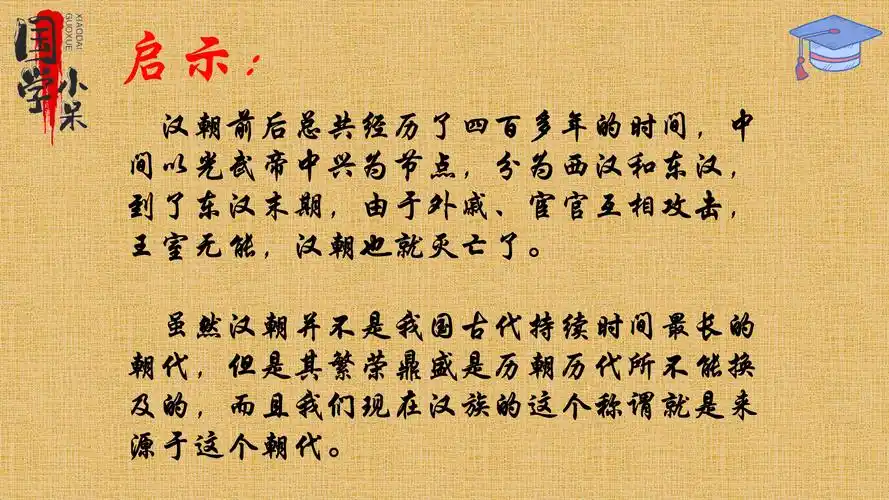 国学小呆
XIAODAI
GUOXUE
启示：
汉朝前后总共经历了四百多年的时间，中
间以光武帝中兴为节点，分为西汉和东汉，
到了东汉末期，由于外戚、宦官互相攻击，
王室无能，汉朝也就灭亡了。
虽然汉朝并不是我国古代持续时间最长的
朝代，但是其繁荣鼎盛是历朝历代所不能换
及的，而且我们现在汉族的这个称谓就是来
源于这个朝代。